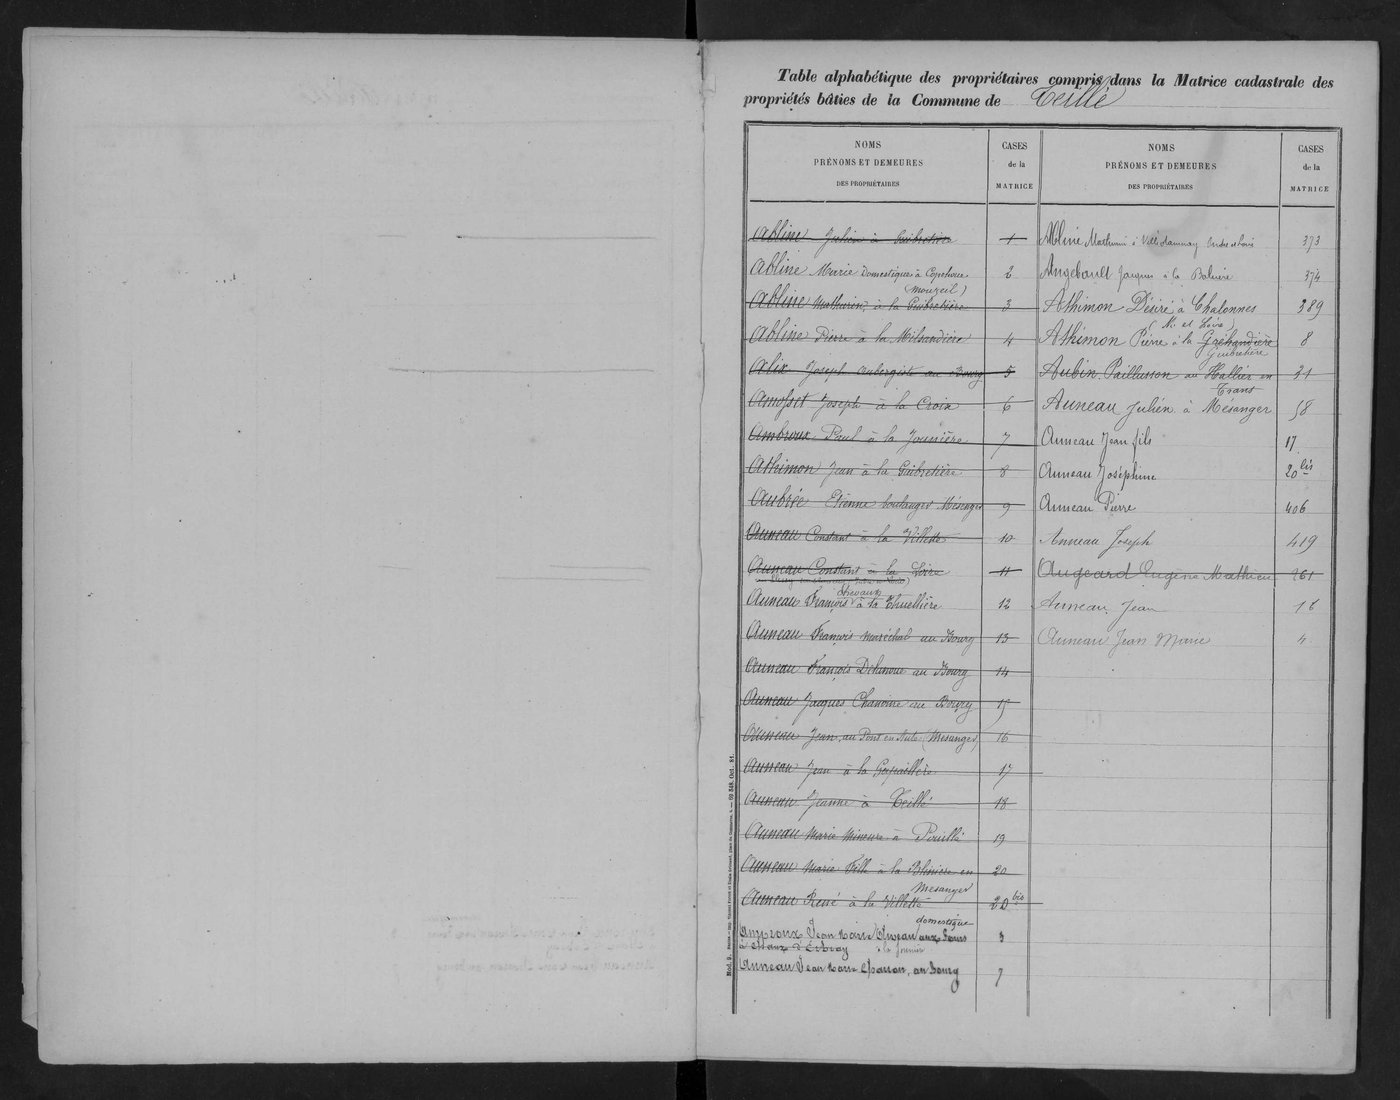 Table alphabétique des propriétaires compris dans la Matrice cadastrale des
propriétés bâties de la Commune de Teillé
NOMS
PRÉNOMS ET DEMEURES
DES PROPRIÉTAIRES
CASES
de la
MATRICE
Abline Julien à Guibretière 1
Abline Marie Domestique à
(Mouzeil) 2
Abline Mathurin, à la Guibretière 3
Abline Pierre à la Milsandière 4
Alix Joseph aubergiste au Bourg 5
Amosset Joseph à la Croix 6
Ambroux Paul à la Jounière 7
Athimon Jean à la Guibretière 8
Aubrée Etienne boulanger Mésanger 9
Auneau Constant à la Villette 10
Auneau Constant à la Loire 11
Chevaux
Auneau François à la Thuellière 12
Auneau François maréchal au Bourg 13
Auneau François Dehenoue au Bourg 14
Auneau Jacques Chanoine au Bourg 15
Auneau Jean, au Pont en Aule (Mesanger) 16
Auneau Jean à la Gapaillère 17
Auneau Jeanne à Teillé 18
Auneau Marie Mineure à Pouillé 19
Auneau Marie Fille à la Blinière en
Mesanger 20
Auneau René à la Villette 20 bis
domestique
Ambroux Jean Marie aux Fours 3
à la
Auneau Jean Marie, au Bourg 7
NOMS
PRÉNOMS ET DEMEURES
DES PROPRIÉTAIRES
CASES
de la
MATRICE
Abliné Mathurin à Villedamnay Indre et Loire 373
Angebault Jacques à la 374
Athimon Désiré à Chalonnes
(M. et Loire) 389
Athimon Pierre à la Gréhandière
Guibretière 8
Aubin Paillusson au Hallier en
Trans 31
Auneau Julien à Mésanger 58
Auneau Jean fils 17
Auneau Joséphine 20 bis
Auneau Pierre 406
Auneau Joseph 419
Augeard Eugène Mathieu 261
Auneau Jean 18
Auneau Jean Marie 4